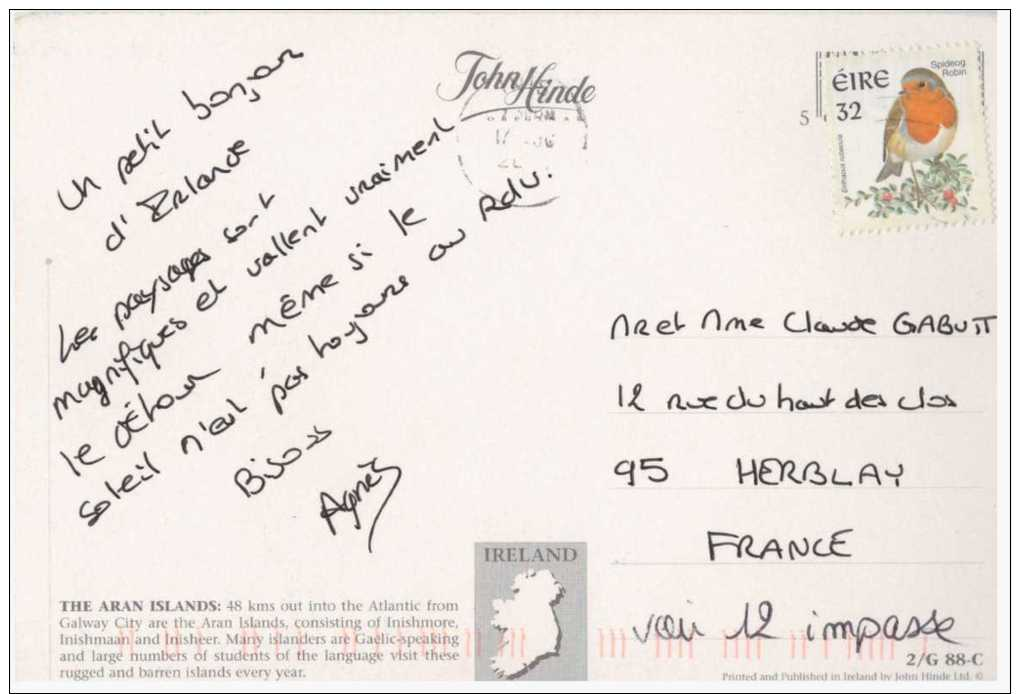 Un petit bonjour
d'Irlande
Les paysages sont
magnifiques et vallent vraiment
le détour même si le
soleil n'est pas toujours au RDV.
Bisous
Agnès
THE ARAN ISLANDS: 48 kms out into the Atlantic from
Galway City are the Aran Islands, consisting of Inishmore,
Inishmaan and Inisheer. Many islanders are Gaelic-speaking
and large numbers of students of the language visit these
rugged and barren islands every year.
John Hinde
IRELAND
5
Spideog
Robin
ÉIRE
32
Mr et Mme Claude GABUIT
12 rue du haut des clos
95 HERBLAY
FRANCE
voir 12 impasse
2/G 88-C
Printed and Published in Ireland by John Hinde Ltd. ©